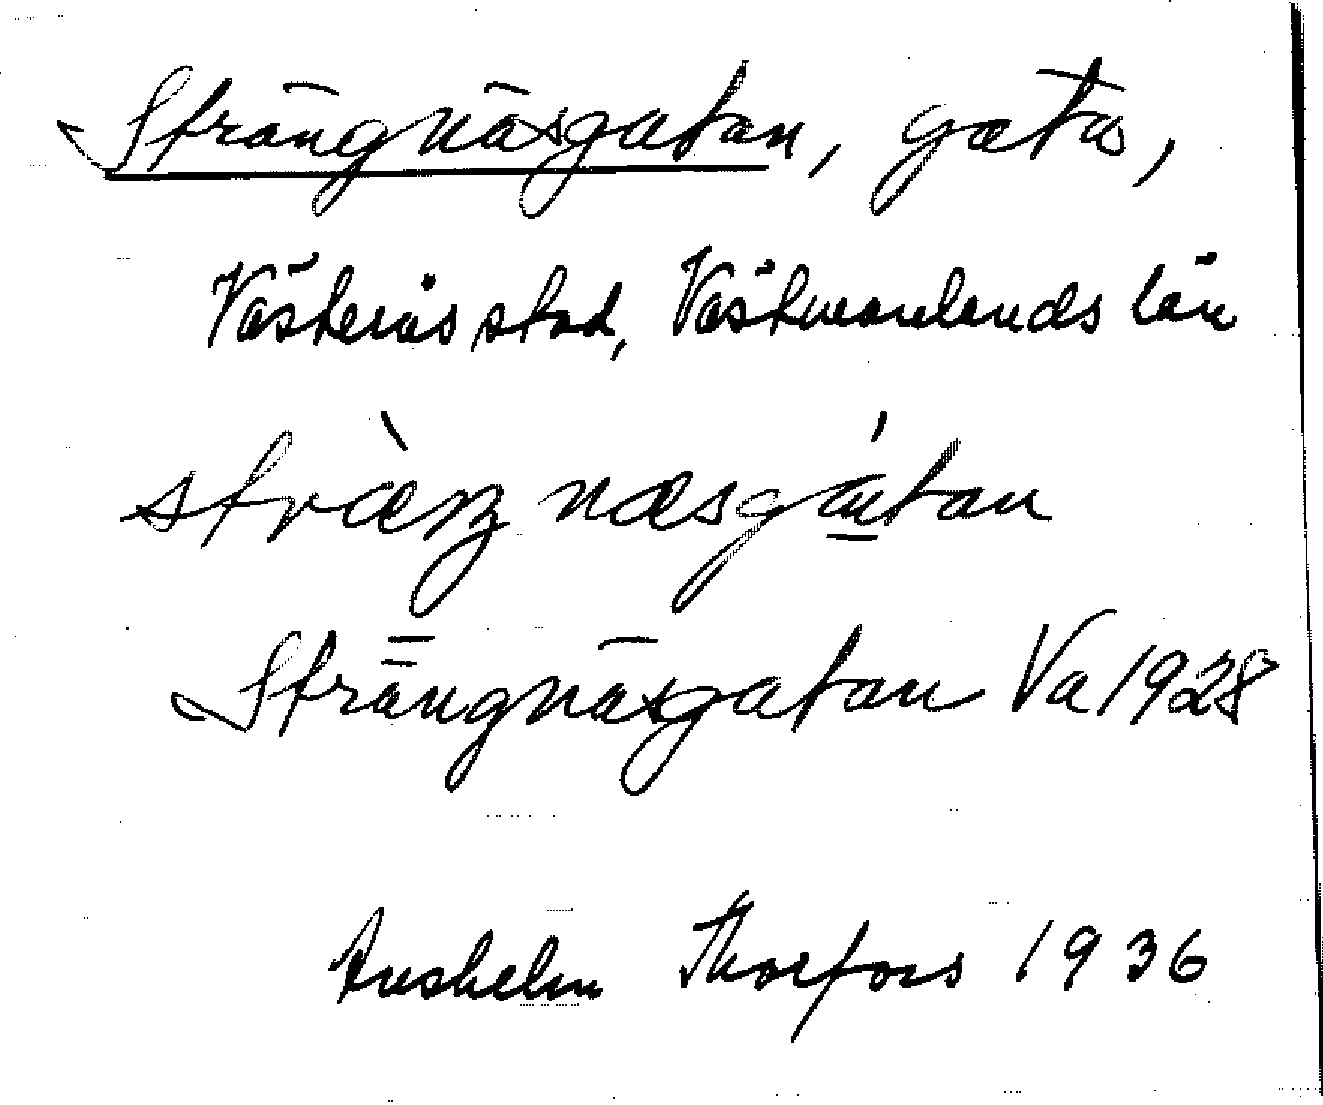 Strängnäsgatan, gata,
Västerås stad, Västmanlands län
stræŋnæsgatan
Strängnäsgatan Va 1928
Anshelm Thorfors 1936